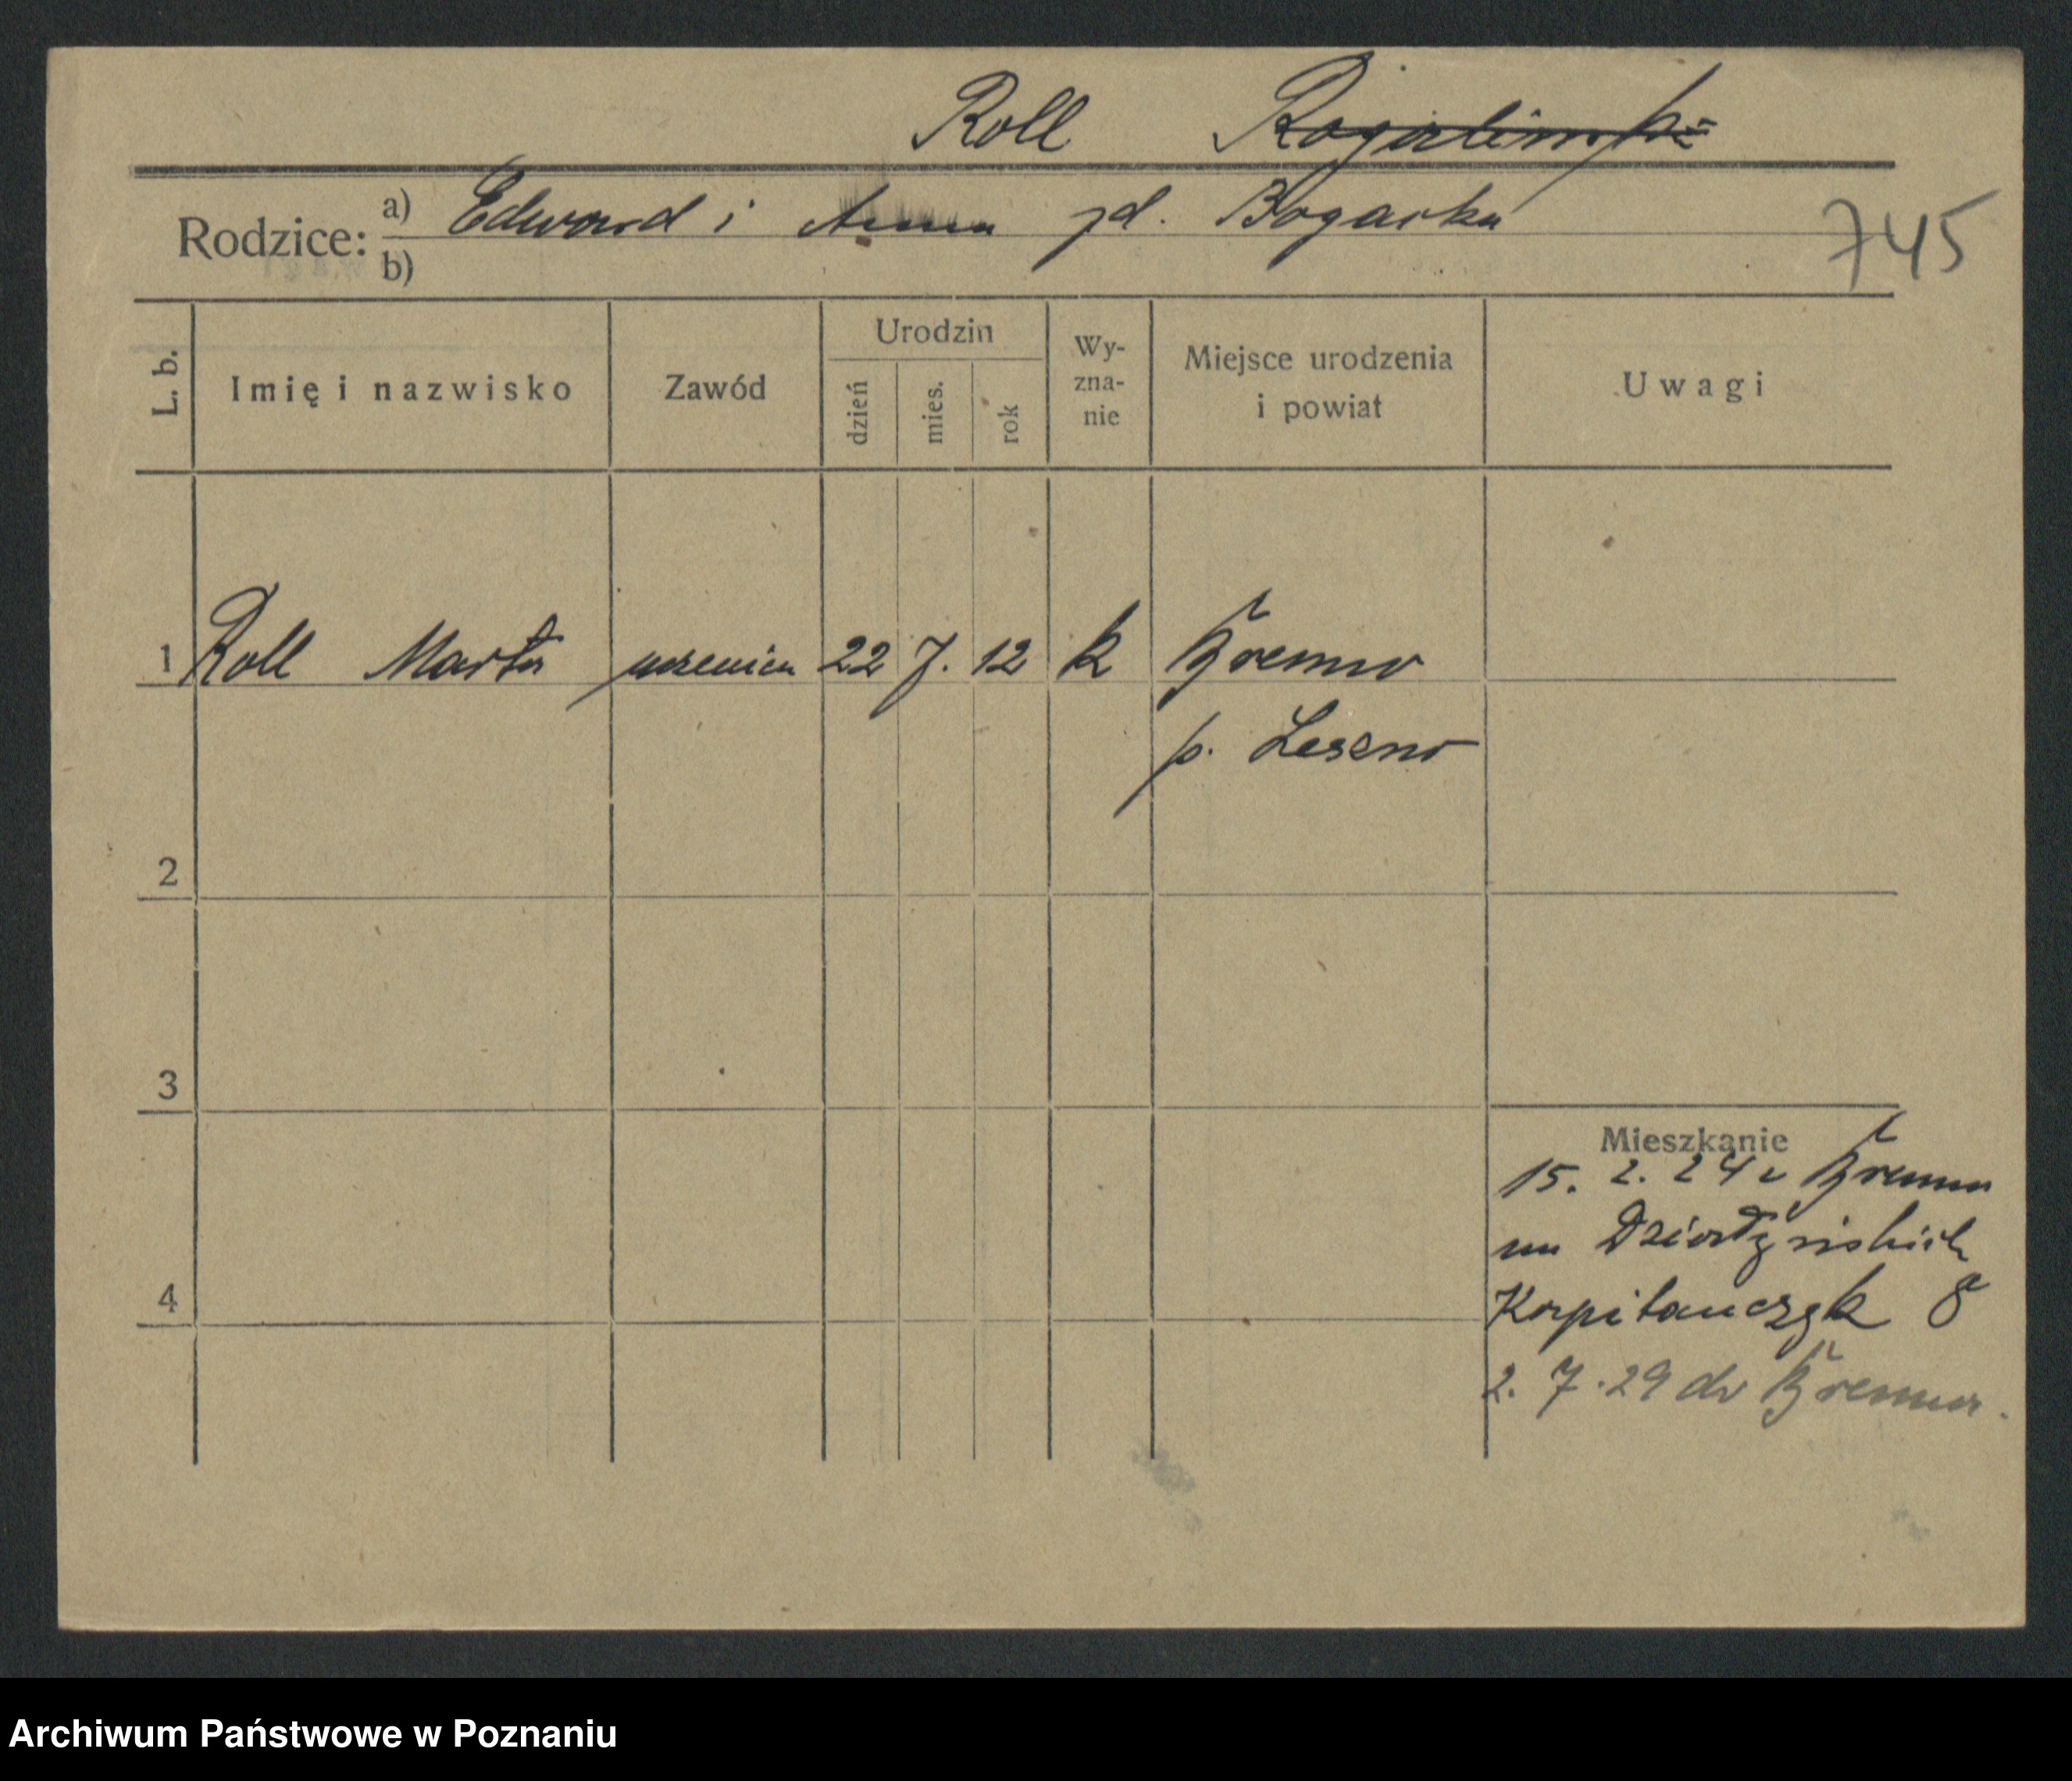 Roll Rogalinski
Rodzice: a) Edward i Anna zd. Bogacka
b)
745
L. b.
Imię i nazwisko
Zawód
Urodzin
dzień
mies.
rok
Wy-
zna-
nie
Miejsce urodzenia
i powiat
Uwagi
1 Roll Marta uczenica 22 7. 12 k Brenno
p. Leszno
2
3
Mieszkanie
15. 2. 24 z Brenna
4
Kapitańczyk 8
2. 7. 29 do Brenna.
Archiwum Państwowe w Poznaniu